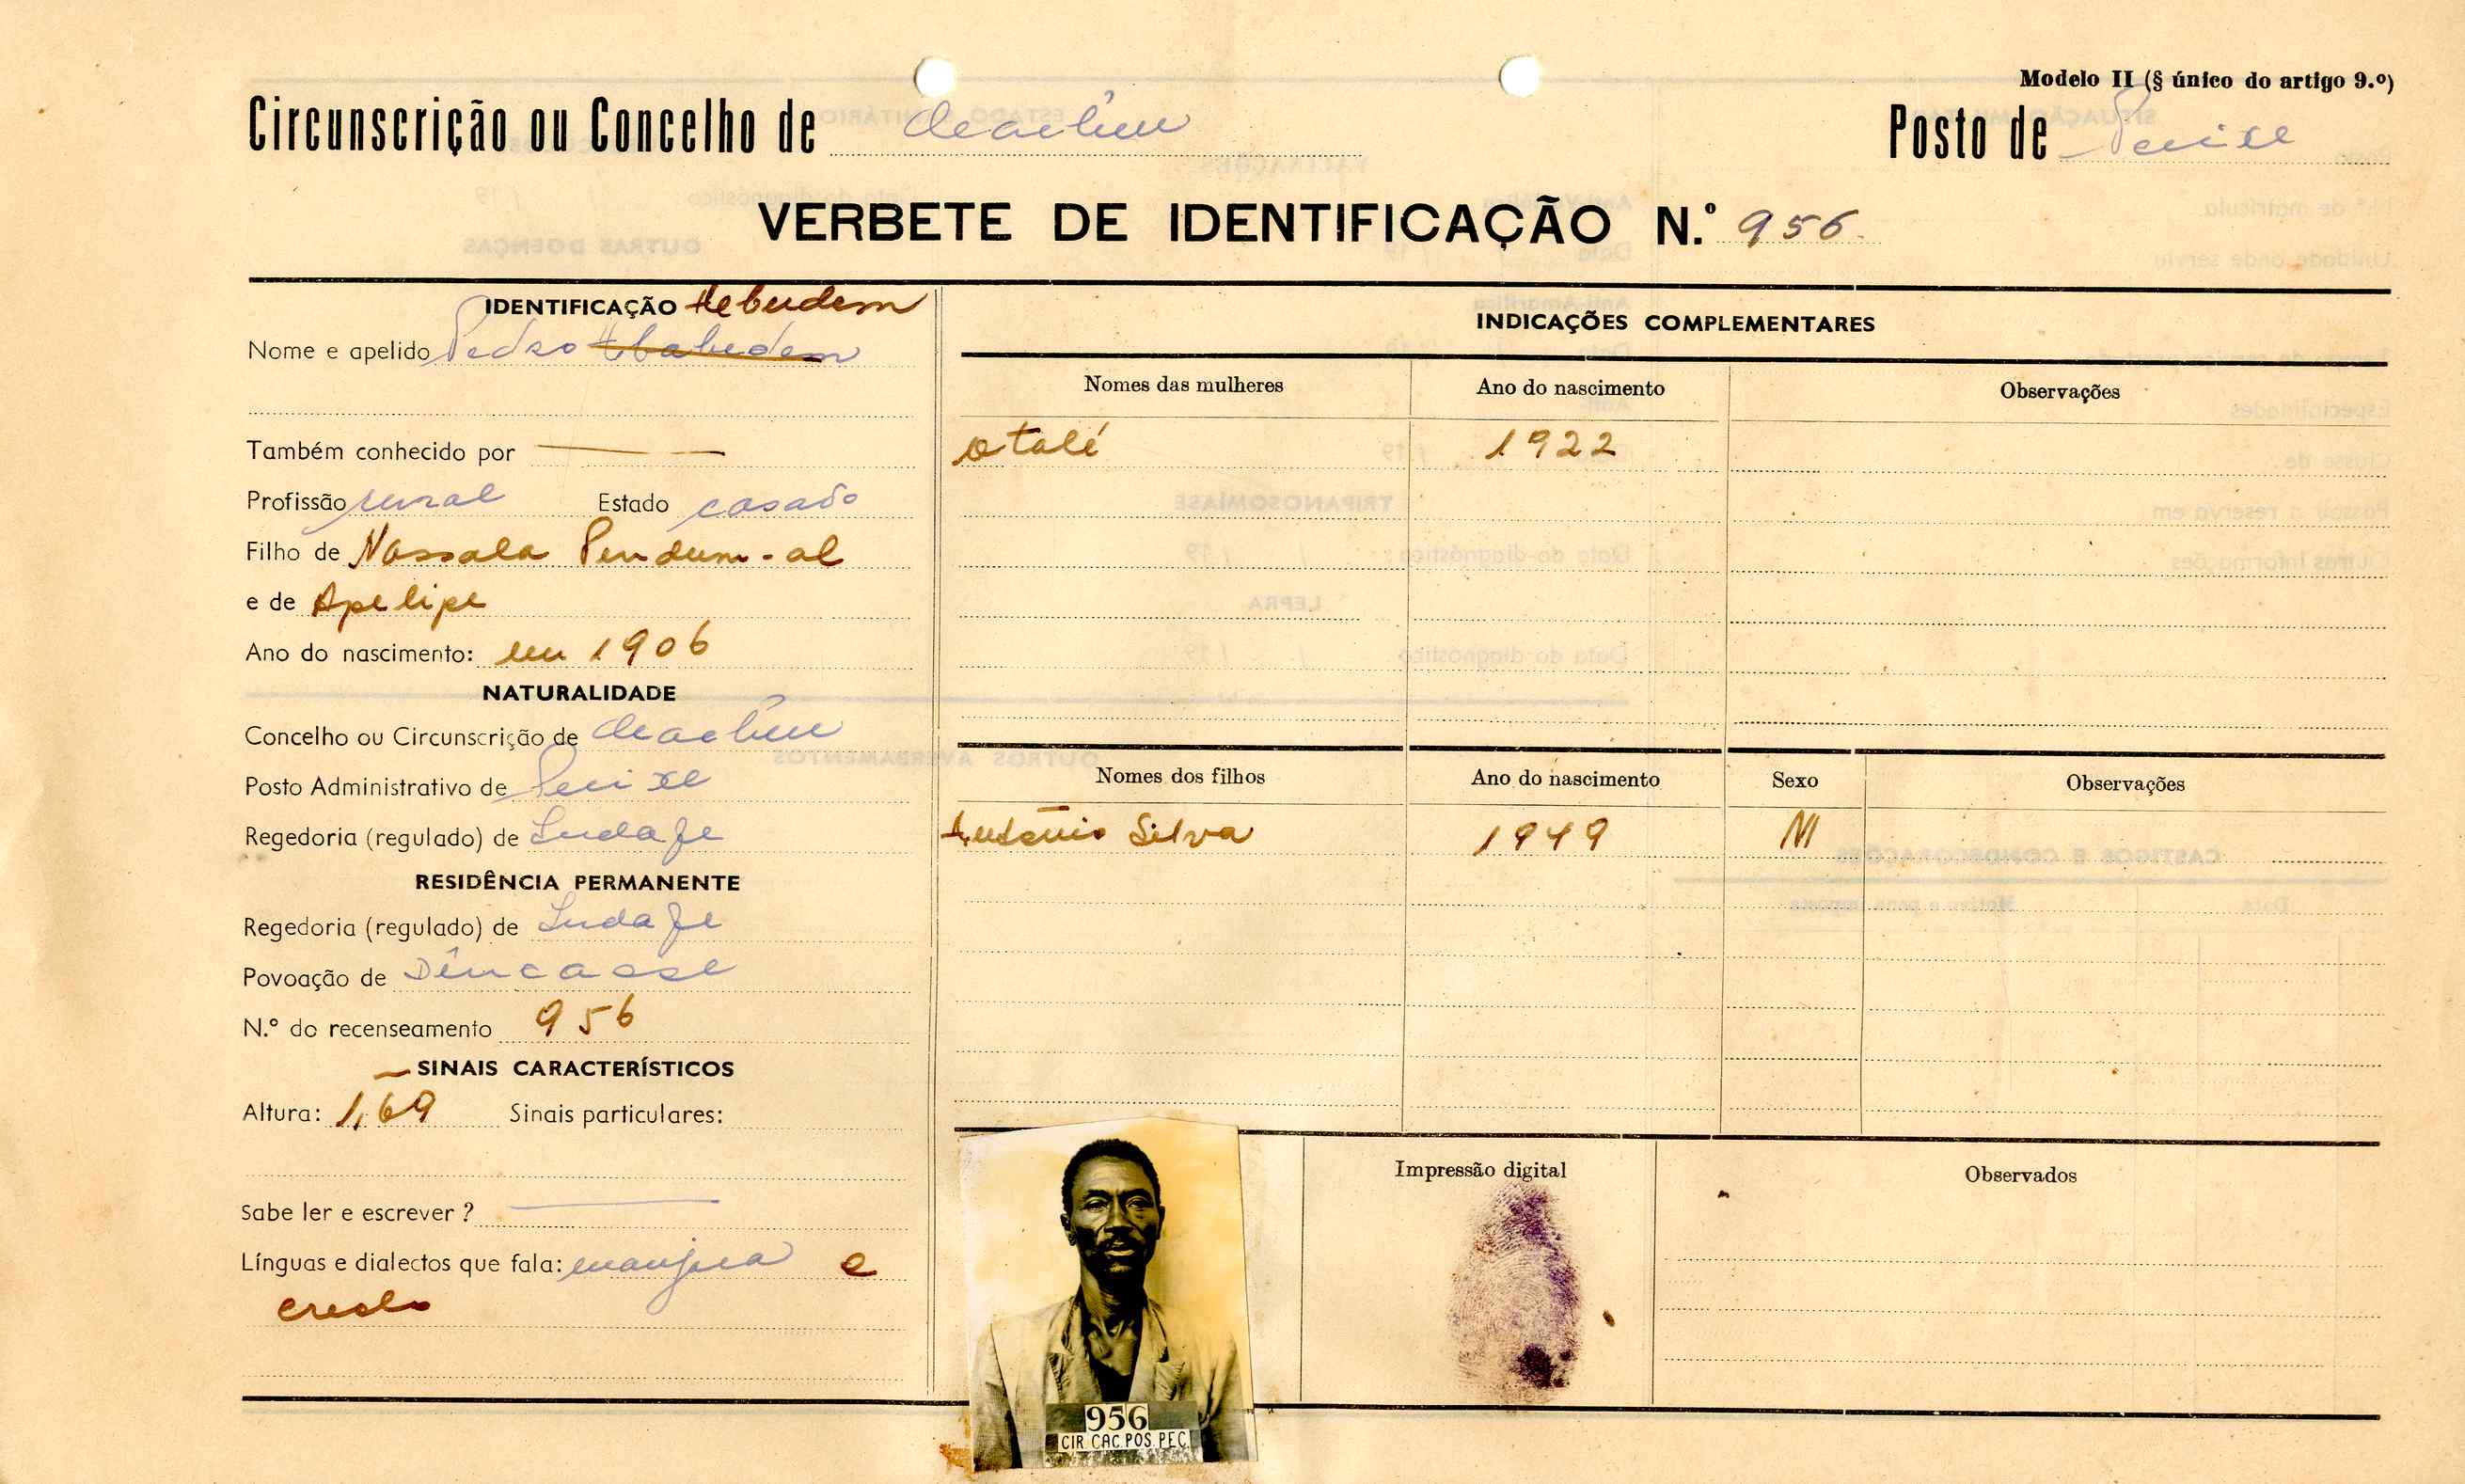 Modelo II (§ único do artigo 9.º)
Circunscrição ou Concelho de Cacheu
Posto de Pecixe
VERBETE DE IDENTIFICAÇÃO N.º 956
IDENTIFICAÇÃO Hebudem
Nome e apelido Pedro
Também conhecido por
Profissão rural Estado casado
Filho de Nassala Pendum-al
e de Apelipe
Ano do nascimento: em 1906
NATURALIDADE
Concelho ou Circunscrição de Cacheu
Posto Administrativo de Pecixe
Regedoria (regulado) de
RESIDÊNCIA PERMANENTE
Regedoria (regulado) de
Povoação de
N.º do recenseamento 956
SINAIS CARACTERÍSTICOS
Altura: 1,69 Sinais particulares:
Sabe ler e escrever ?
Línguas e dialectos que fala: manjaca e
creolo
INDICAÇÕES COMPLEMENTARES
Nomes das mulheres Ano do nascimento Observações
Otalé 1922
Nomes dos filhos Ano do nascimento Sexo Observações
António Silva 1949 M
Impressão digital
Observados
956
CIR. CAC. POS. PEC.